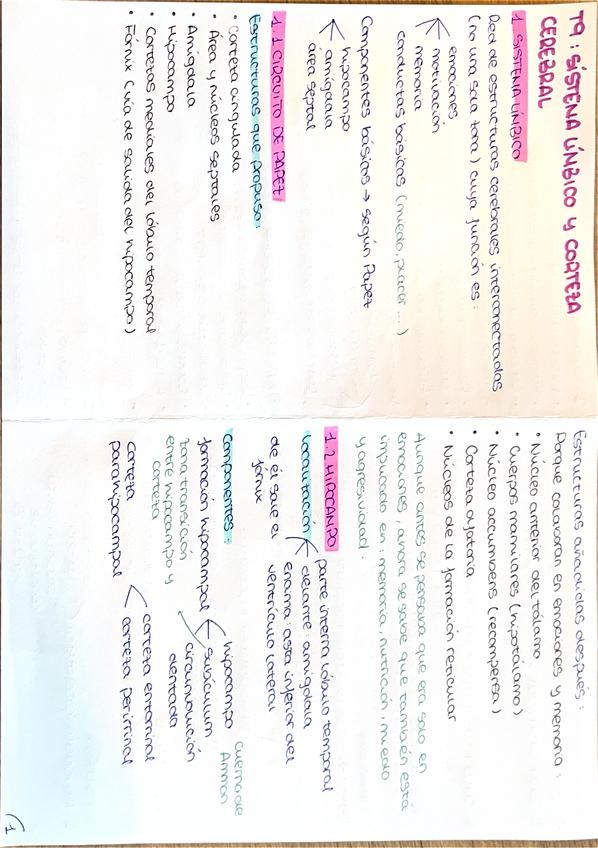 T9: SISTEMA LÍNBICO Y CORTEZA
CEREBRAL
1. SISTEMA LÍNBICO
Red de estructuras cerebrales interconectadas
(no una sola zona) cuya función es:
emociones
motivación
memoria
conductas básicas (miedo, placer...)
Componentes básicos → según Papez
hipocampo
amígdala
área septal
1.1 CIRCUITO DE PAPEZ
Estructuras que propuso:
• Corteza cingulada
• Área y núcleos septales
• Amígdala
• Hipocampo
• Cortezas mediales del lóbulo temporal
• Fórnix (vía de salida del hipocampo)
Estructuras añadidas después:
Porque colaboran en emociones y memoria:
• Núcleo anterior del tálamo
• Cuerpos mamilares (hipotálamo)
• Núcleo accumbens (recompensa)
• Corteza olfatoria
• Núcleos de la formación reticular
Aunque antes se pensaba que era solo en
emociones, ahora se sabe que también está
implicado en: memoria, nutrición, miedo
y agresividad.
1.2 HIPOCAMPO
parte interna lóbulo temporal
Localización
delante: amígdala
encima: asta inferior del
ventrículo lateral
de él sale el
fórnix
Componentes:
formación hipocampal
hipocampo
cuerno de
Ammon
subículum
circunvolución
dentada
zona transición
entre hipocampo y
corteza
corteza
parahipocampal
corteza entorrinal
corteza perirrinal
1